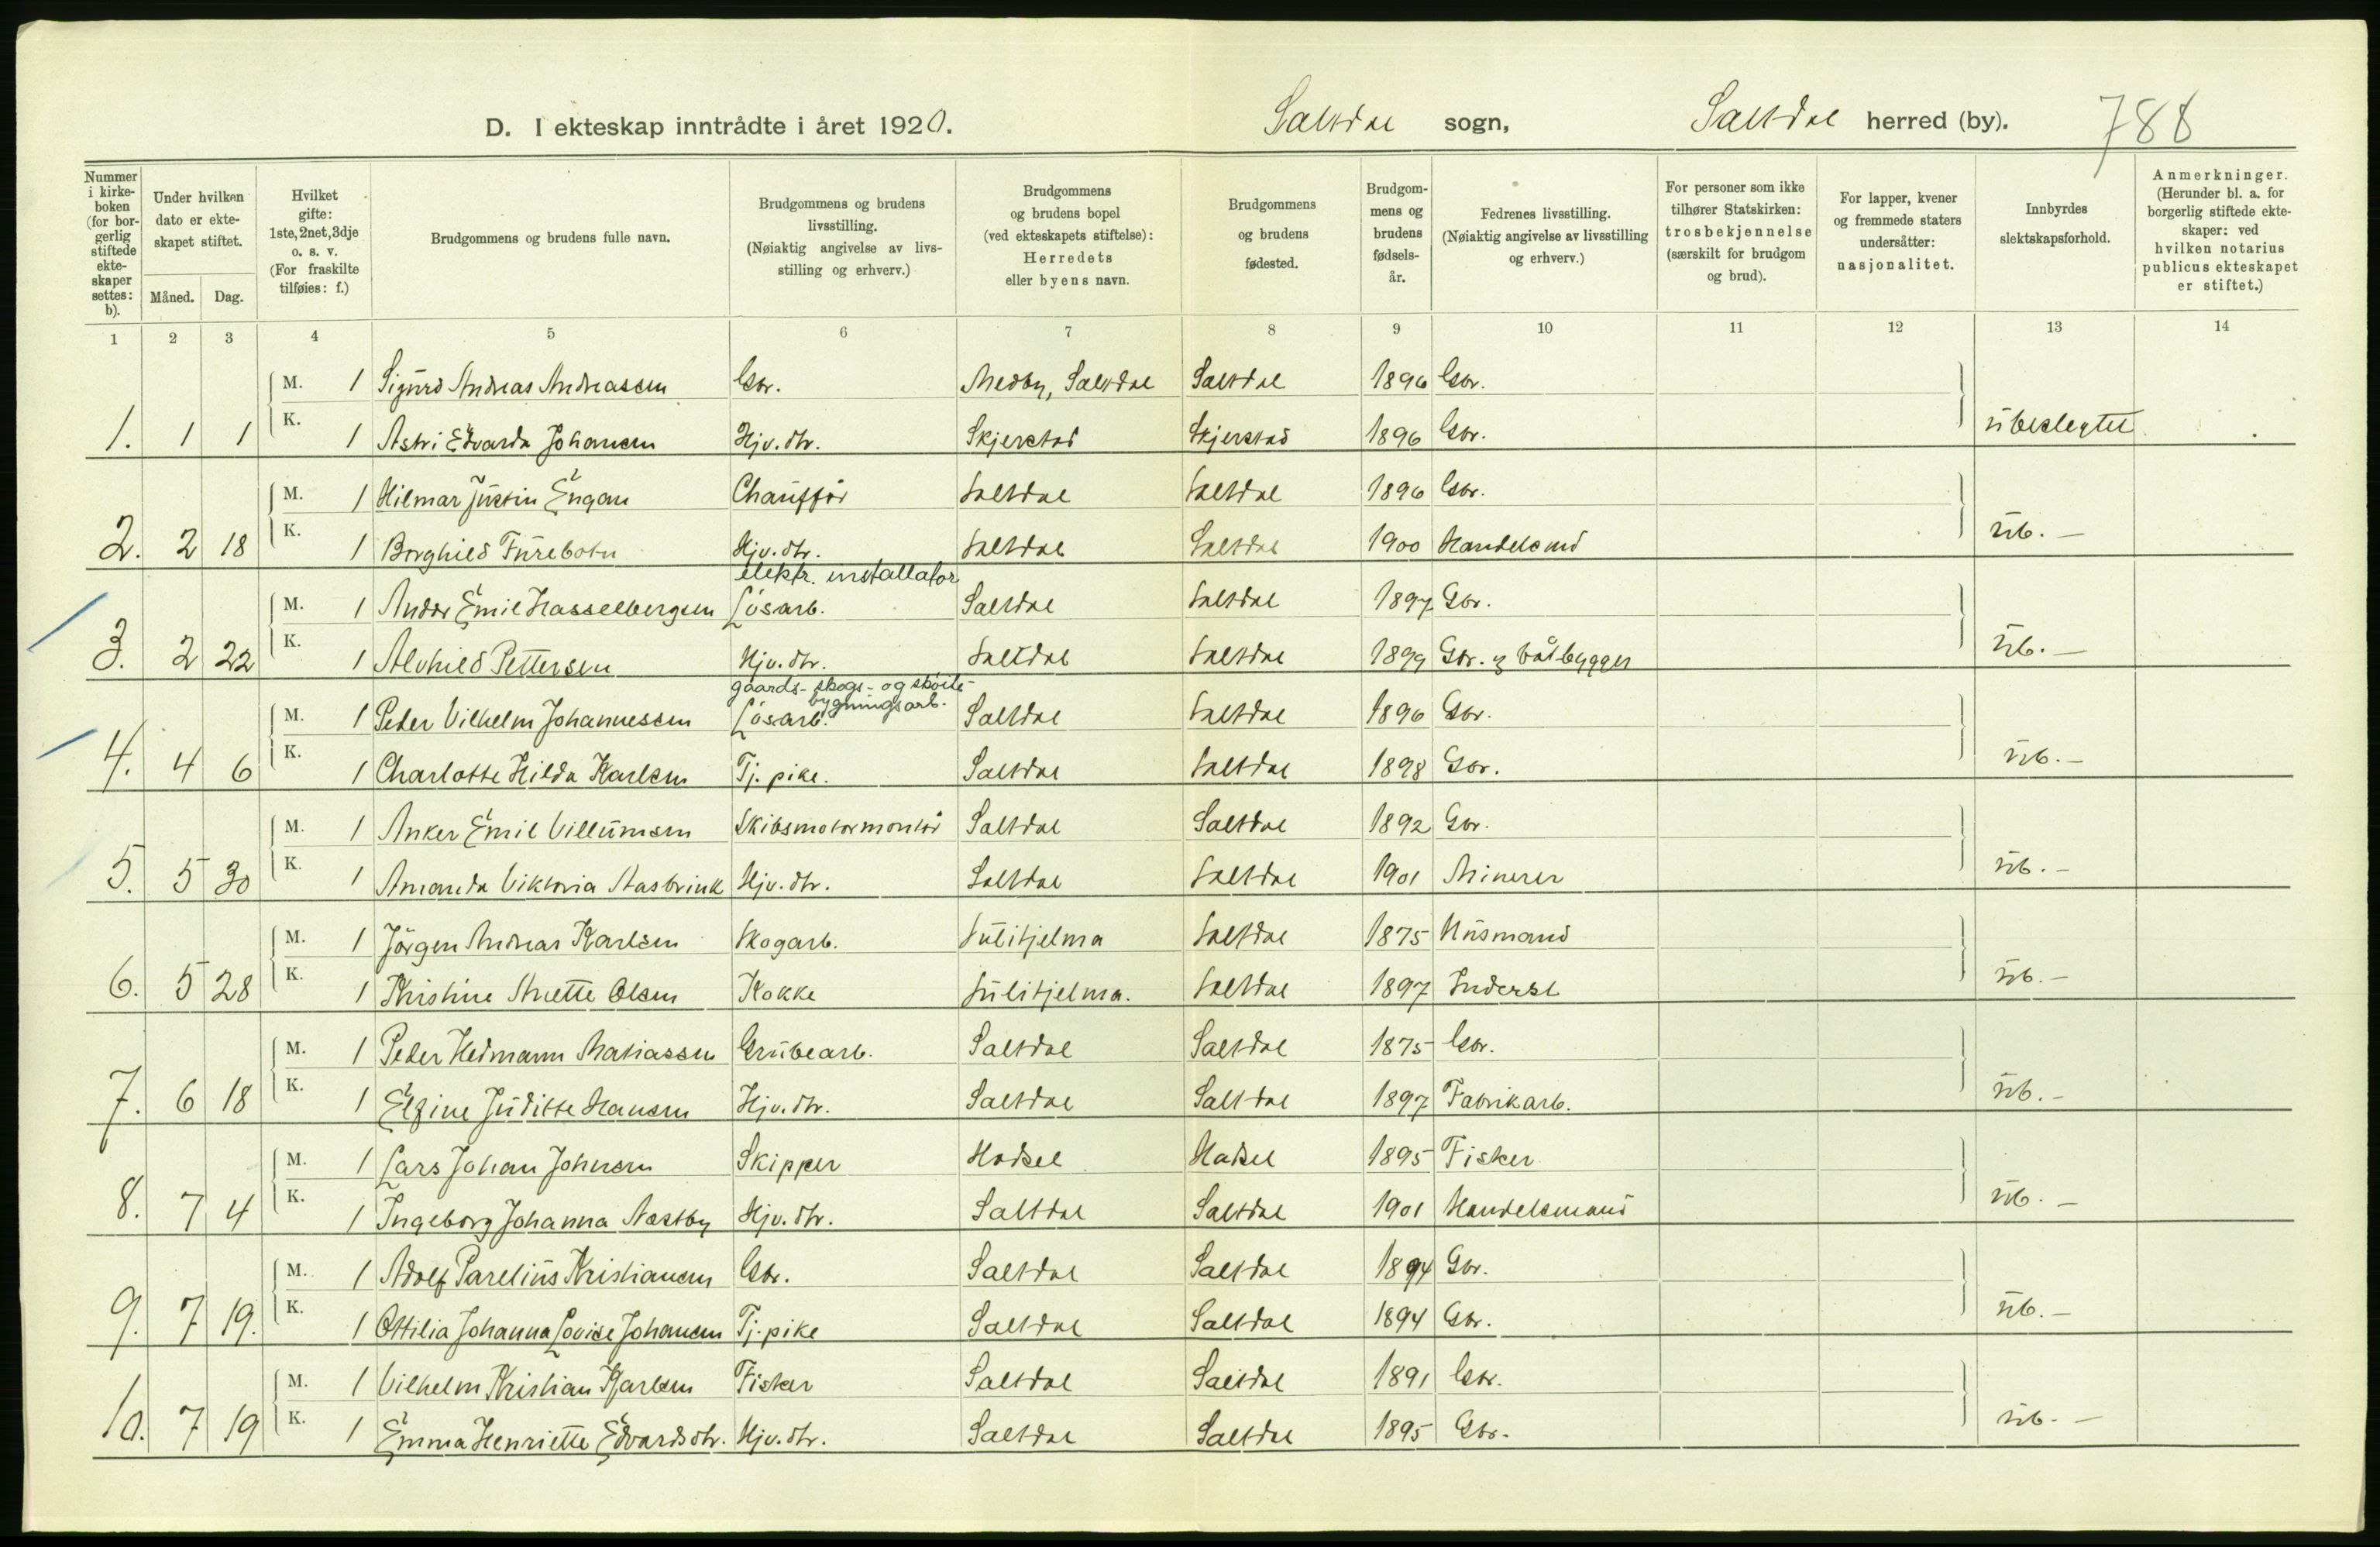 D. I ekteskap inntrådte i året 1920. Saltdal sogn, Saltdal herred (by). 788
Nummer i kirkeboken (for borgerlig stiftede ekteskaper settes: b).
Under hvilken dato er ekteskapet stiftet.
Måned. Dag.
Hvilket gifte: 1ste, 2net, 3dje o. s. v. (For fraskilte tilføies: f.)
Brudgommens og brudens fulle navn.
Brudgommens og brudens livsstilling. (Nøiaktig angivelse av livsstilling og erhverv.)
Brudgommens og brudens bopel (ved ekteskapets stiftelse): Herredets eller byens navn.
Brudgommens og brudens fødested.
Brudgommens og brudens fødselsår.
Fedrenes livsstilling. (Nøiaktig angivelse av livsstilling og erhverv.)
For personer som ikke tilhører Statskirken: trosbekjennelse (særskilt for brudgom og brud).
For lapper, kvener og fremmede staters undersåtter: nasjonalitet.
Innbyrdes slektskapsforhold.
Anmerkninger. (Herunder bl. a. for borgerlig stiftede ekteskaper: ved hvilken notarius publicus ekteskapet er stiftet.)
1 2 3 4 5 6 7 8 9 10 11 12 13 14
M. 1 Sigurd Andreas Andreassen Gbr. Medby, Saltdal Saltdal 1896 Gbr.
1. 1 1 K. 1 Astri Edvarda Johansen Hjv. dtr. Skjerstad Skjerstad 1896 Gbr. ubeslegtet
M. 1 Hilmar Justin Engan Chauffør Saltdal Saltdal 1896 Gbr.
2. 2 18 K. 1 Borghild Furebotn Hjv. dtr. Saltdal Saltdal 1900 Handelsmd ub. —
elektr. installatør
M. 1 Andor Emil Hasselbergsen Løsarb. Saltdal Saltdal 1897 Gbr.
3. 2 22 K. 1 Alvhild Pettersen Hjv. dtr. Saltdal Saltdal 1899 Gbr. & båtbygger ub. —
gaards- skogs- og skøite-
bygningsarb.
M. 1 Peder Vilhelm Johannessen Løsarb. Saltdal Saltdal 1896 Gbr.
4. 4 6 K. 1 Charlotte Hilda Karlsen Tj. pike. Saltdal Saltdal 1898 Gbr. ub. —
M. 1 Anker Emil Villumsen Skibsmotormontør Saltdal Saltdal 1892 Gbr.
5. 5 30 K. 1 Amanda Viktoria Aasbrink Hjv. dtr. Saltdal Saltdal 1901 Minerer ub. —
M. 1 Jörgen Andreas Karlsen Skogarb. Sulitjelma Saltdal 1875 Husmand
6. 5 28 K. 1 Kristine Anette Olsen Kokke Sulitjelma. Saltdal 1897 Inderst ub. —
M. 1 Peder Hedmann Matiassen Grubearb. Saltdal Saltdal 1875 Gbr.
7. 6 18 K. 1 Elfine Juditte Hansen Hjv. dtr. Saltdal Saltdal 1897 Fabrikarb. ub. —
M. 1 Lars Johan Johnsen Skipper Hadsel Hadsel 1895 Fisker
8. 7 4 K. 1 Ingeborg Johanna Næstby Hjv. dtr. Saltdal Saltdal 1901 Handelsmand ub. —
M. 1 Adolf Parelius Kristiansen Gbr. Saltdal Saltdal 1894 Gbr.
9. 7 19. K. 1 Ottilia Johanna Lovise Johansen Tj. pike Saltdal Saltdal 1894 Gbr. ub. —
M. 1 Vilhelm Kristian Karlsen Fisker Saltdal Saltdal 1891 Gbr.
10. 7 19 K. 1 Emma Henriette Edvardsdtr. Hjv. dtr. Saltdal Saltdal 1895 Gbr. ub. —